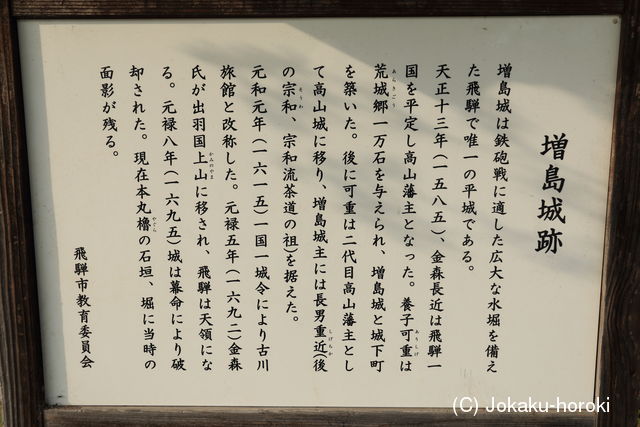 増島城跡
増島城は鉄砲戦に適した広大な水堀を備え
た飛騨で唯一の平城である。
天正十三年(一五八五)、金森長近は飛騨一
国を平定し高山藩主となった。養子可重は
ありしげ
荒城郷一万石を与えられ、増島城と城下町
あらきごう
を築いた。後に可重は二代目高山藩主とし
て高山城に移り、増島城主には長男重近(後
しげちか
の宗和、宗和流茶道の祖)を据えた。
そうわ
元和元年(一六一五)一国一城令により古川
旅館と改称した。元禄五年(一六九二)金森
氏が出羽国上山に移され、飛騨は天領にな
かみのやま
る。元禄八年(一六九五)城は幕命により破
却された。現在本丸櫓の石垣、堀に当時の
やぐら
面影が残る。
飛騨市教育委員会
(C) Jokaku-horoki